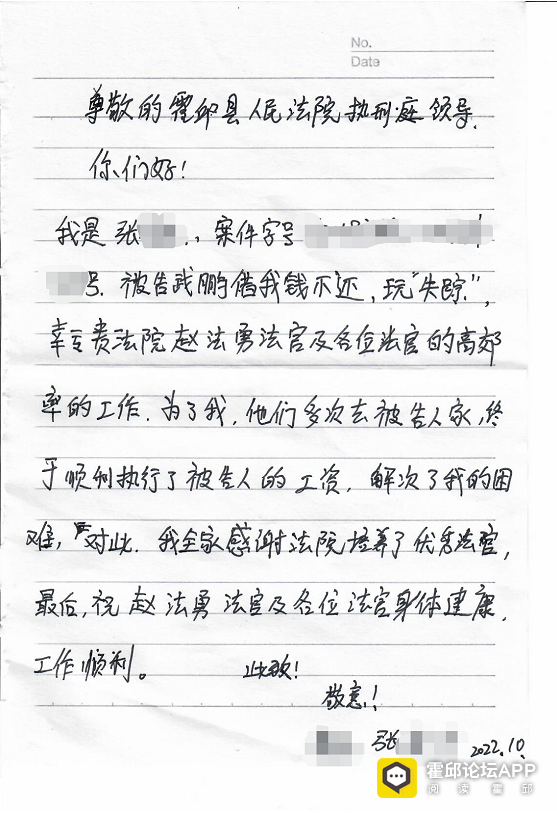 No.
Date
尊敬的霍邱县人民法院执刑庭领导.
你们好!
我是张 ., 案件字号
号. 被告武鹏借我钱不还, 玩"失踪",
幸亏贵法院赵法勇法官及各位法官的高效
率的工作. 为了我, 他们多次去被告人家, 终
于顺利执行了被告人的工资, 解决了我的困
难, 对此. 我全家感谢法院培养了优秀法官,
最后, 祝赵法勇法官及各位法官身体建康,
工作顺利。 此致!
敬意!
张 2022.10.
霍邱论坛APP
阅读霍邱